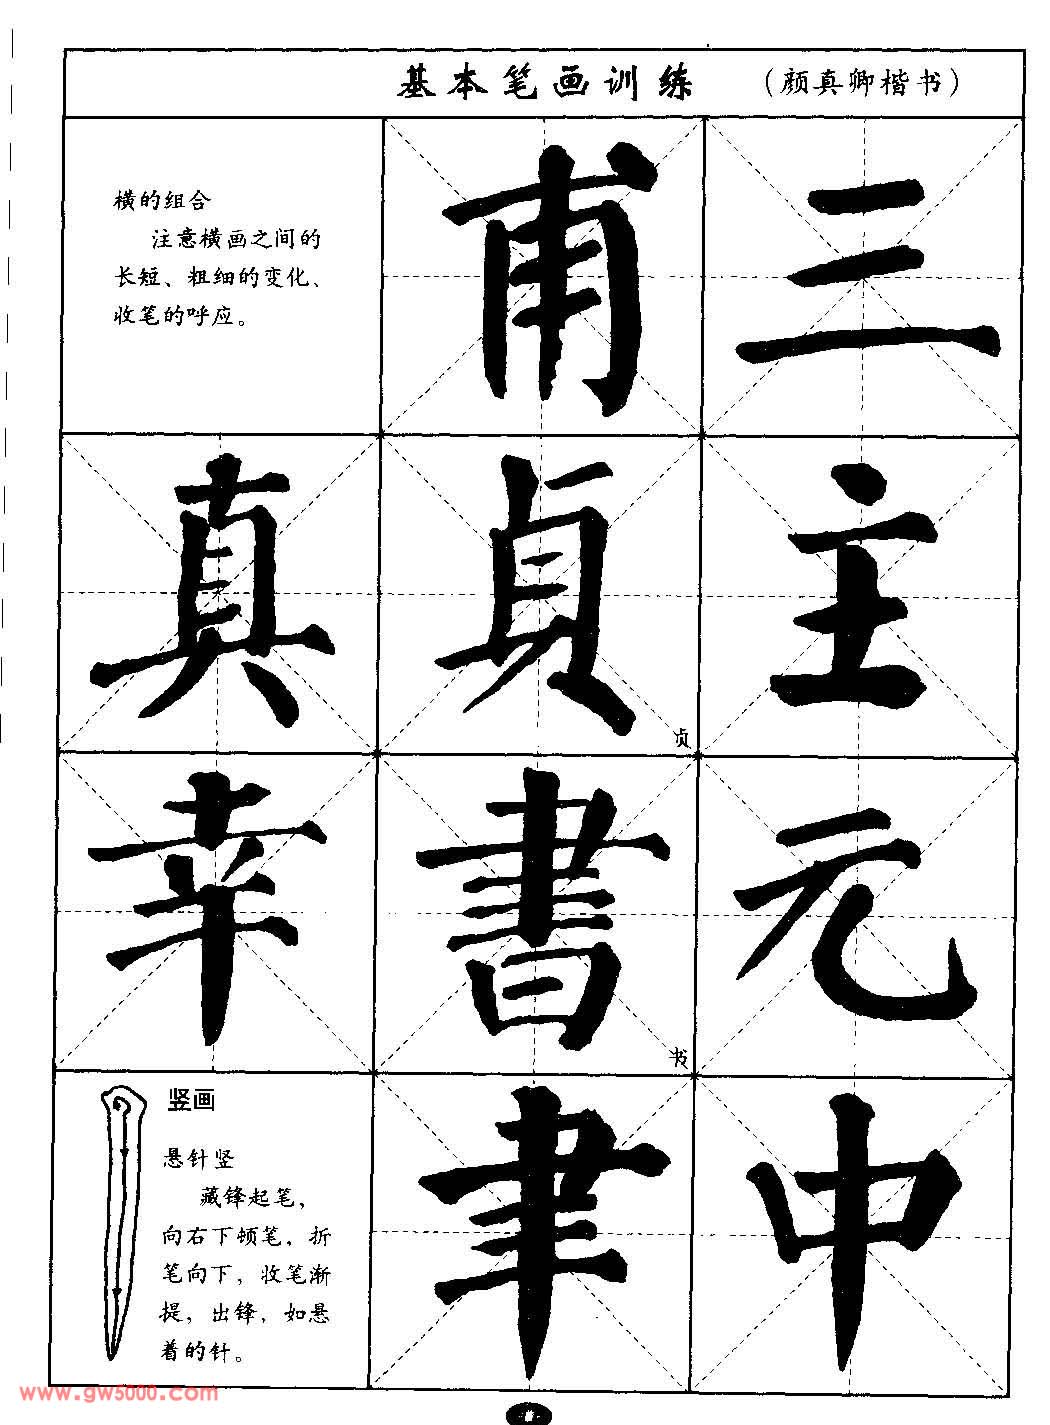 基本笔画训练 （颜真卿楷书）
横的组合
注意横画之间的
长短、粗细的变化、
收笔的呼应。
甫
三
真
貞
贞
主
幸
書
书
元
竖画
悬针竖
藏锋起笔，
向右下顿笔，折
笔向下，收笔渐
提，出锋，如悬
着的针。
聿
中
www.gw5000.com